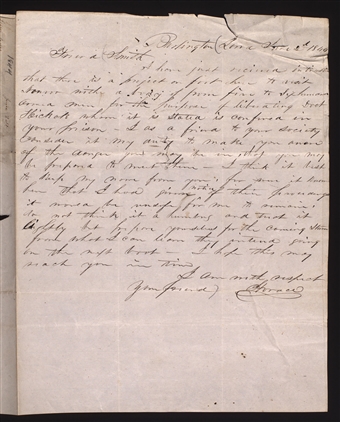 Burlington Iowa 1844
Friend Smith
I have just received
that there is a project on foot here to visit
Nauvoo with a body of from five to
armed men for the purpose of liberating Doct
Hickok whom it is stated is confined in
your prison – I as a friend to your society
consider it my duty to make you aware
of the danger you may be in, that you may
be prepared to meet them – I think it best
to keep my name from you for were it known
here that I had given notice of their proceedings
it would be unsafe for me to remain.
do not think it a humbug and treat it
lightly but prepare yourselves for the coming storm
from what I can learn they intend going
on the next boat – I hope this may
reach you in time
I am with respect
Your friend
Horace